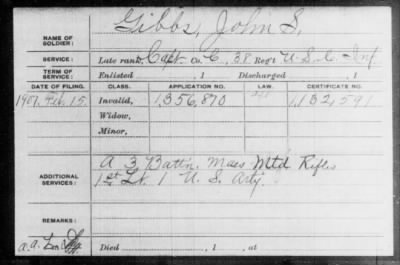 Gibbs, John S.
NAME OF SOLDIER:
SERVICE: Late rank, Capt Co. C, 38 Reg't U.S.C. Inf
TERM OF SERVICE: Enlisted , 1 Discharged , 1
DATE OF FILING. CLASS. APPLICATION NO. LAW. CERTIFICATE NO.
1907, Feb. 15. Invalid, 1,356,870 1,132,591
Widow,
Minor,
ADDITIONAL SERVICES: A 3 Batt'n. Mass Mtd Rifles
1st Lt. 1 U. S. Arty.
REMARKS:
Died , 1 , at